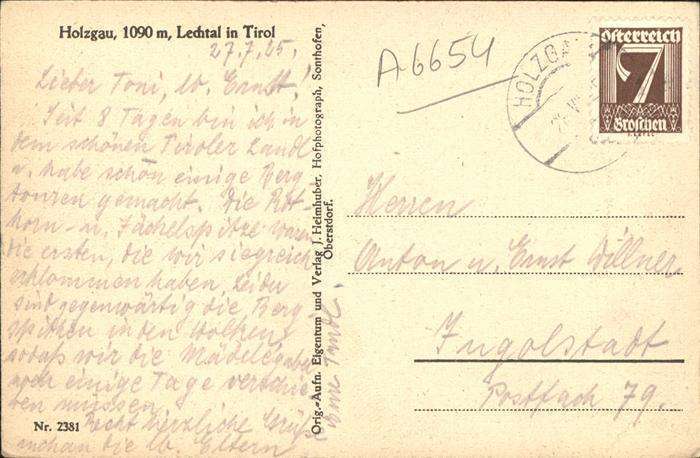 Holzgau, 1090 m, Lechtal in Tirol
27.7.25.
Lieber Toni, lb. Ernst!
Seit 8 Tagen bin ich in
dem schönen Tiroler Landl
u. habe schon einige Berg
touren gemacht. Die Rot-
horn- u. Jöchelspitze waren
die ersten, die wir siegreich
erklommen haben, leider
sind gegenwärtig die Berg-
spitzen in den Wolken,
sodaß wir die Mädelegabel
noch einige Tage verschie-
ben müssen.
Recht herzliche Grüße
die lb. Eltern
Nr. 2381
Orig.-Aufn. Eigentum und Verlag J. Heimhuber, Hofphotograph, Sonthofen,
Oberstdorf.
A6654
HOLZGAU
Österreich
7
Groschen
Herren
Anton u. Ernst Willner
Ingolstadt
Postfach 79.